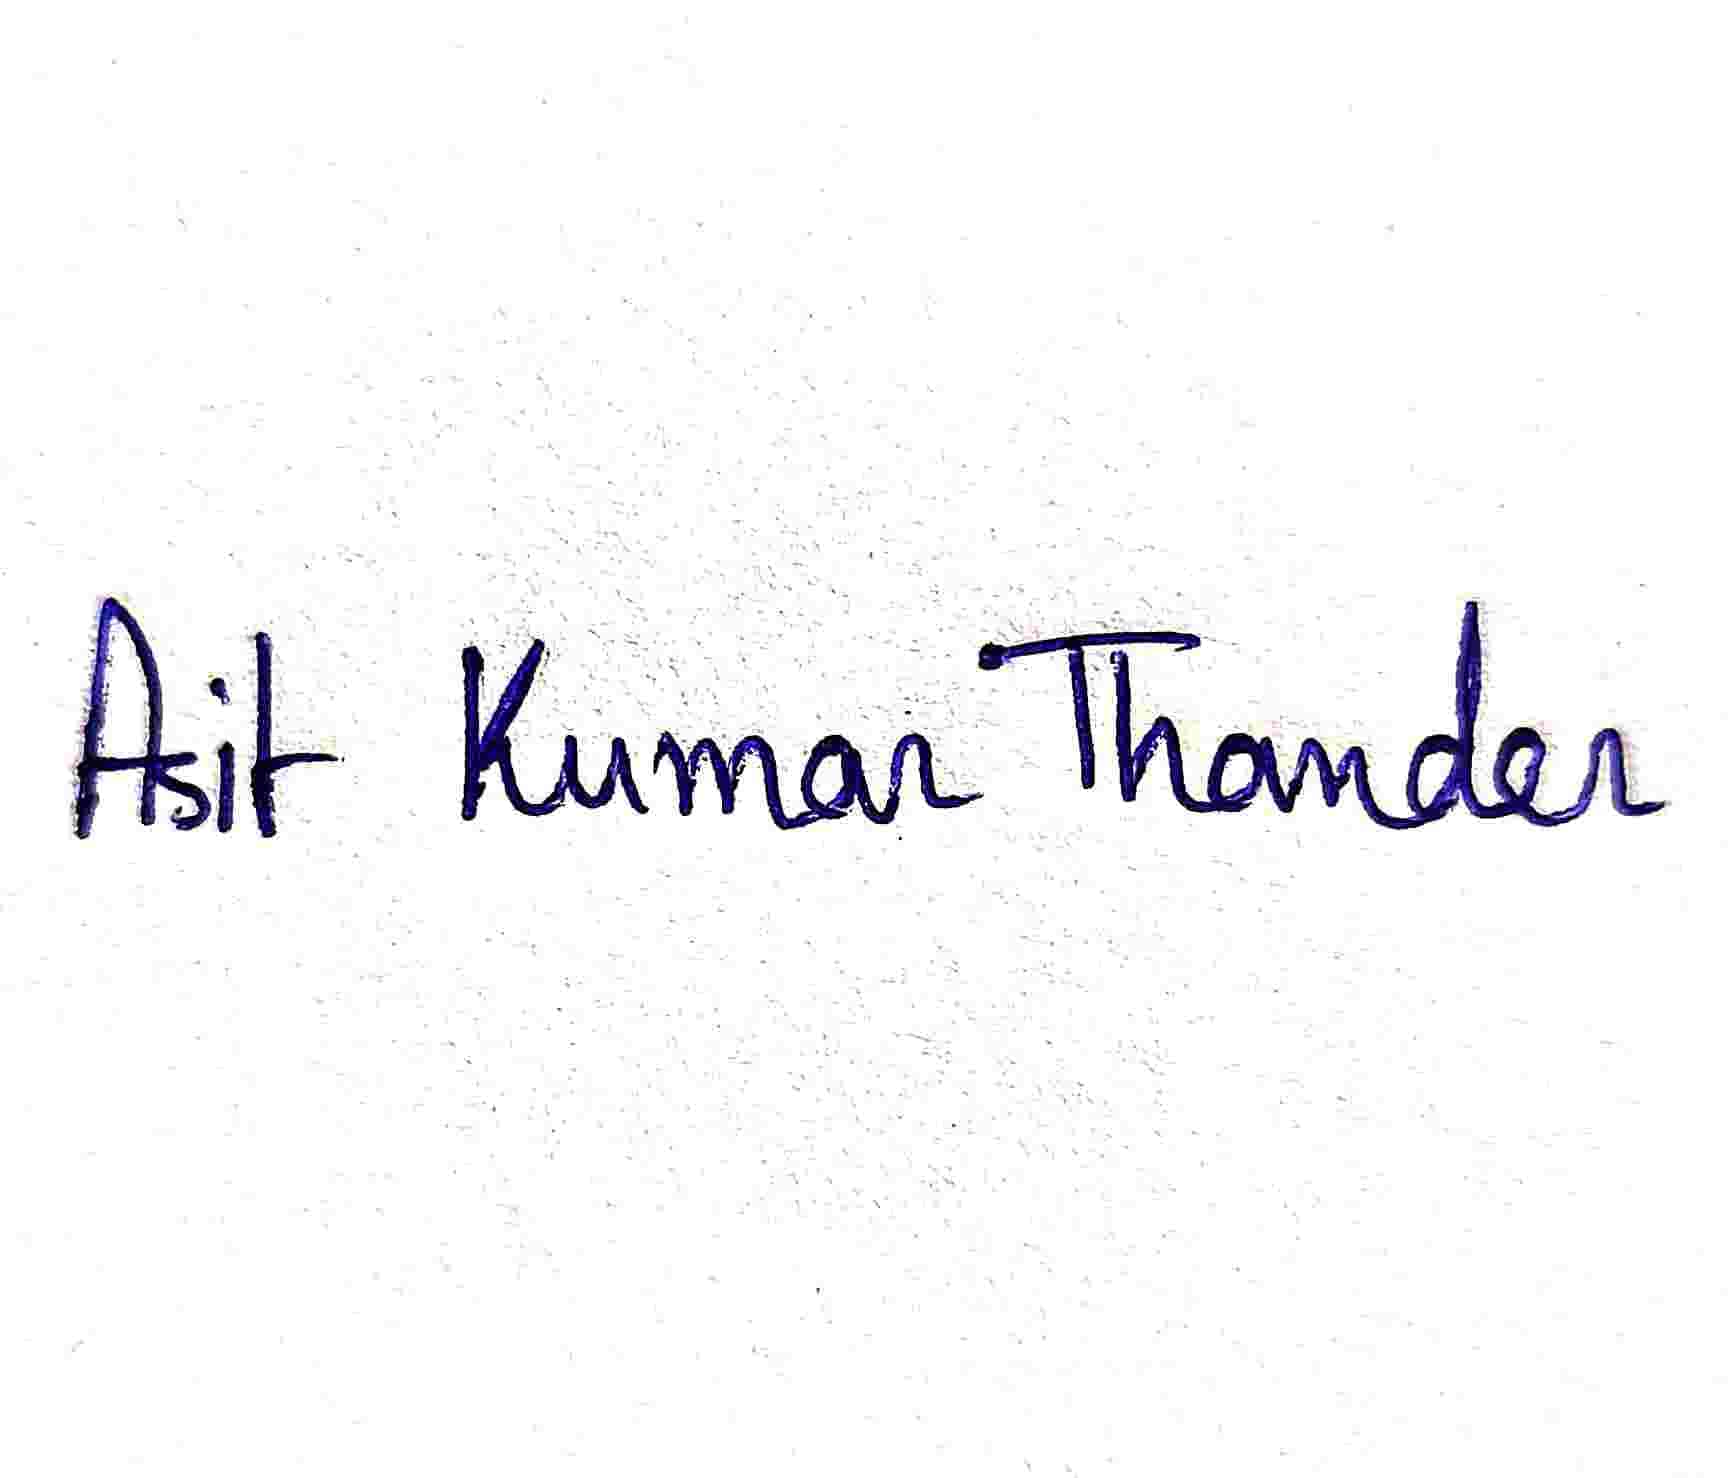 Asit Kumar Thander